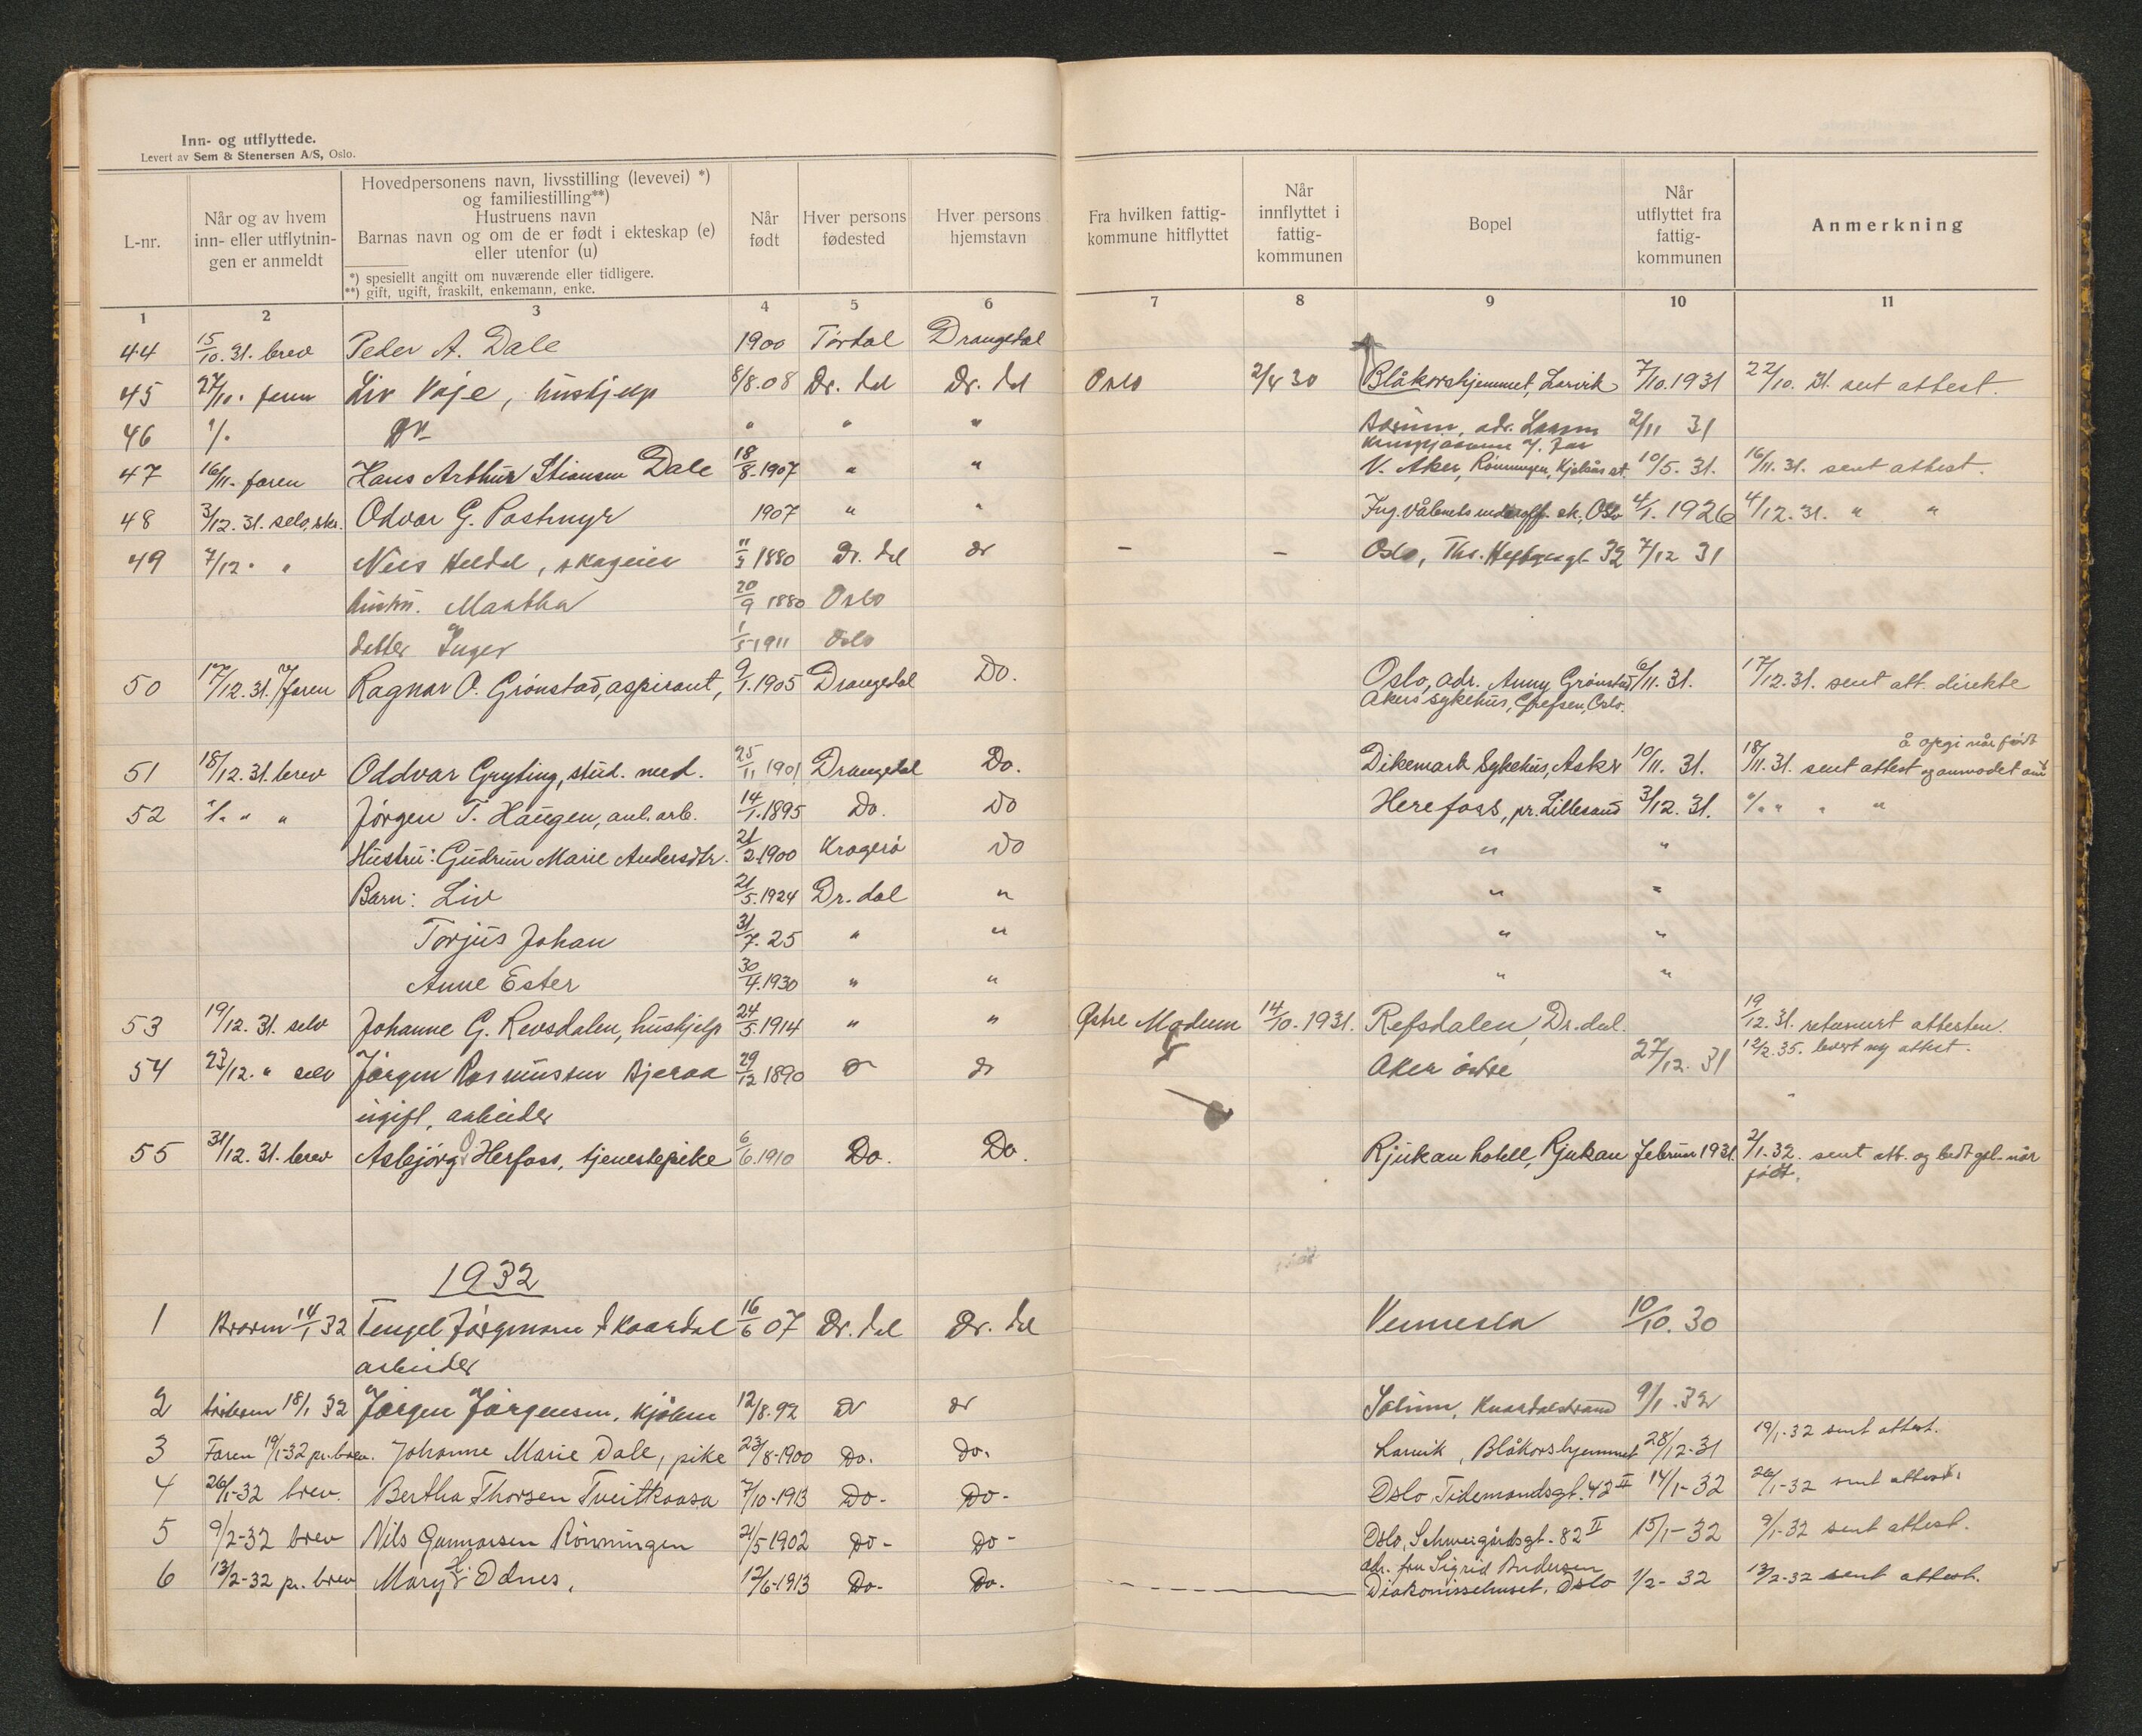 Inn- og utflyttede.
Levert av Sem & Stenersen A/S, Oslo.
L-nr.
Når og av hvem
inn- eller utflytnin-
gen er anmeldt
Hovedpersonens navn, livsstilling (levevei) *)
og familiestilling**)
Hustruens navn
Barnas navn og om de er født i ekteskap (e)
eller utenfor (u)
*) spesiellt angitt om nuværende eller tidligere.
**) gift, ugift, fraskilt, enkemann, enke.
Når
født
Hver persons
fødested
Hver persons
hjemstavn
Fra hvilken fattig-
kommune hitflyttet
Når
innflyttet i
fattig-
kommunen
Bopel
Når
utflyttet fra
fattig-
kommunen
Anmerkning
1 2 3 4 5 6 7 8 9 10 11
44 15/10. 31. brev Peder A. Dale 1900 Tørdal Drangedal
45 27/10. faren Liv Voje, hushjelp 8/8.08 Dr. dal Dr. dal Oslo 2/4 30 Blåkorshjemmet, Larvik 7/10.1931 22/10. 31. sent attest.
46 "/. Do " " " Bærum, adr. 2/11 31
47 16/11. faren Hans Arthur Stiansen Dale 18/8.1907 " " V. Aker, Rönningen, Kjelsås st. 10/5. 31. 16/11. 31. sent attest.
48 3/12. 31. selv, skr. Odvar G. Postmyr 1907 " " Ing.våbnets underoff. sk., Oslo 4/1. 1926 4/12. 31. " "
49 7/12 " " Heldal, skogeier 1880 Dr. dal do - - Oslo, Ths. Heftyesgt. 32 7/12 31
hustru. Martha 20/9 1880 Oslo
datter Inger 1/5 1911 Oslo
50 17/12. 31. v/faren Ragnar O. Grönstad, aspirant, 9/1.1905 Drangedal Do. Oslo, adr. Anny Grönstad 6/11. 31. 17/12. 31. sent att. direkte
Akers sykehus, Grefsen, Oslo.
51 18/12. 31. brev Oddvar Gryting, stud. med. 25/11 1901 Drangedal Do. Dikemark Sykehus, Asker 10/11. 31. 18/11. 31. sent attest og anmodet om
å opgi når født
52 "/. " " Jörgen T. Haugen, anl. arb. 14/1.1895 Do. Do Herefoss, pr. Lillesand 3/12. 31. "/. " " "
Hustru: Gudrun Marie Andersdtr. 21/2.1900 Kragerö Do " "
Barn: Liv 21/5.1924 Dr. dal " " "
Torjus Johan 31/7. 25 " " " "
Anne Ester 30/4.1930 " " " "
53 19/12. 31. selv Johanne G. Revsdalen, hushjelp 24/5.1914 " " Østre Modum 14/10. 1931. Refsdalen, Dr. dal. 19/12. 31. returnert attesten.
12/2. 35. levert ny attest.
54 23/12. " selv Jörgen Rasmussen Bjeraa 29/12 1890 do do Aker östre 27/12. 31
ugift, arbeider
55 31/12. 31. brev Asbjörg O Herfoss, tjenestepike 6/6.1910 Do. Do. Rjukan hotell, Rjukan februar 1931. 2/1. 32. sent att. og bedt opl. når
född.
1932
1 Broren 14/1 32 Tengel Jörgensen Skaardal 16/6 07 Dr. dal Dr. dal Vennesla 10/10. 30
arbeider
2 18/1 32 Jörgen Jörgensen, Kjölen 12/8.92 do do Solum, Knardalstrand 9/1. 32
3 Faren 19/1-32 pr. brev. Johanne Marie Dale, pike 23/8-1900 Do. Do. Larvik, Blåkorshjemmet 28/12-31 19/1-32 sent attest.
4 26/1-32 brev. Bertha Thorsen Tveitkaasa 7/10-1913 Do- Do- Oslo, Tidemandsgt. 42 II 14/1-32 26/1-32 sent attest.
5 9/2-32 brev Nils Gunnarsen Rönningen 21/5-1902 Do- Do- Oslo, Schweigårdsgt. 82 II 15/1-32 9/1-32 sent attest.
6 13/2-32 pr. brev Mary H. Odnes. 12/6-1913 Do- Do. adr. fru Sigrid Andersen
Diakonissehuset, Oslo 1/2-32 13/2-32 sent attest.